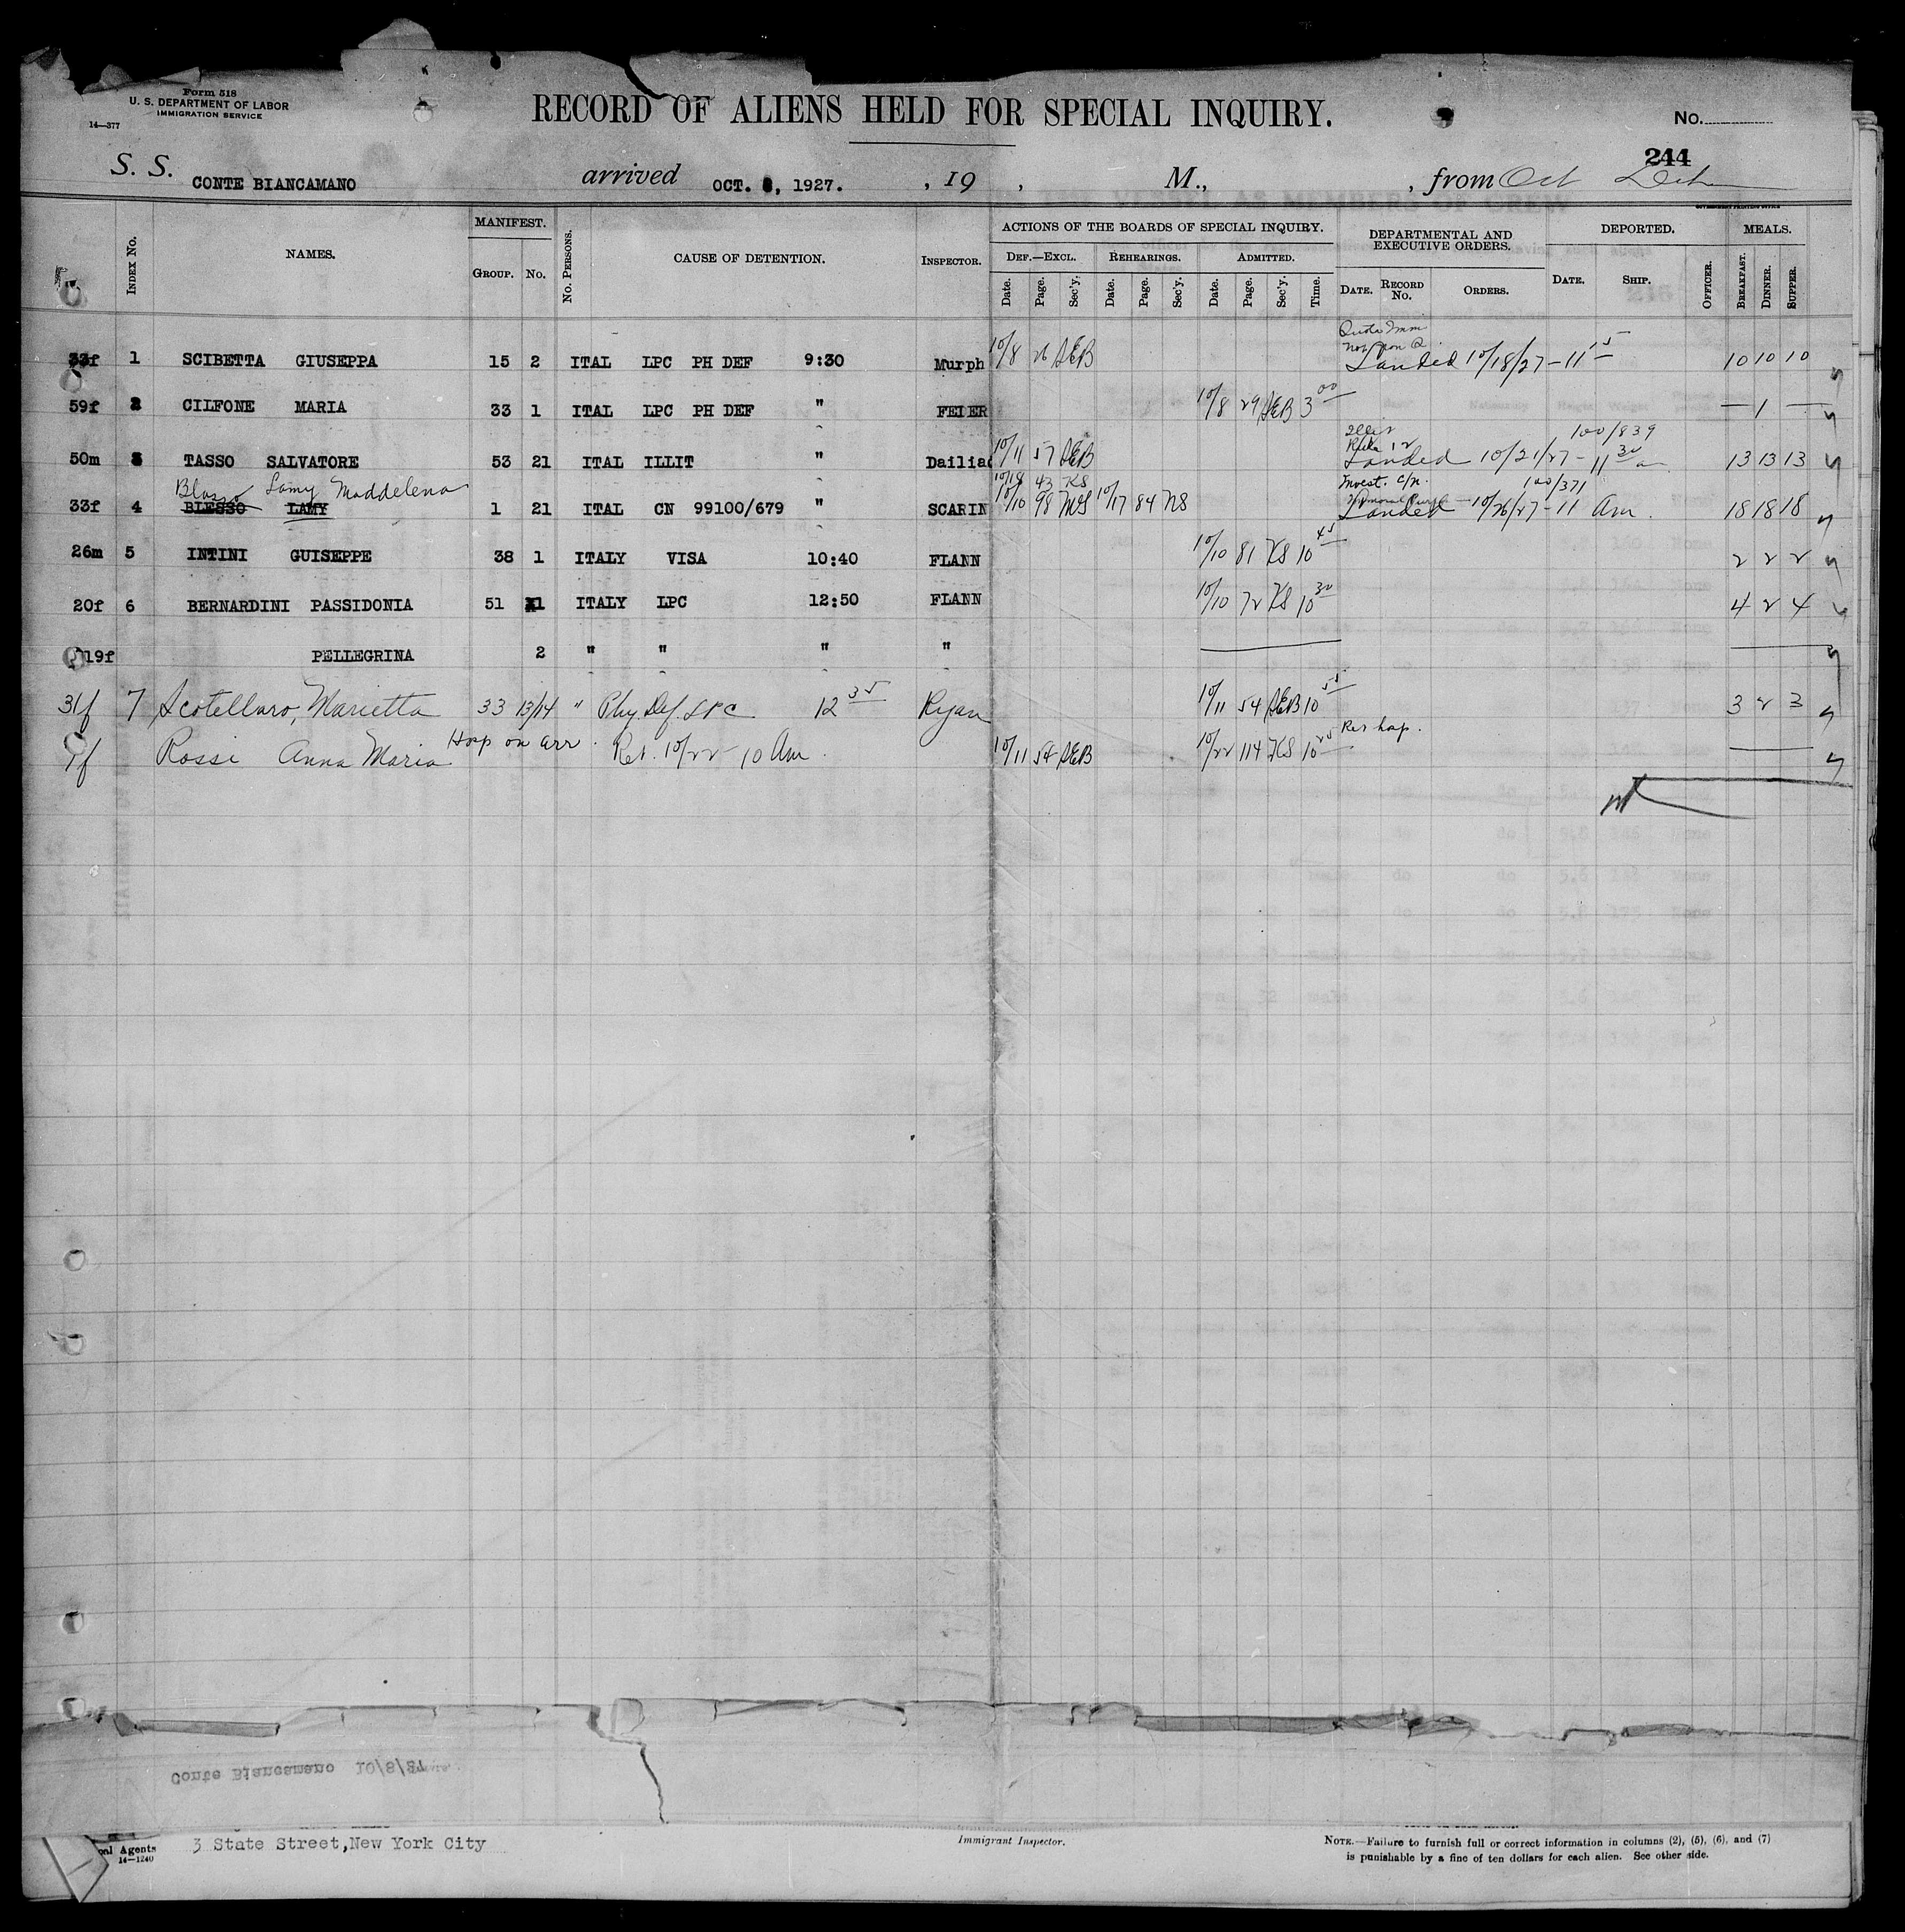 Form 518
U. S. DEPARTMENT OF LABOR
IMMIGRATION SERVICE
14—377
RECORD OF ALIENS HELD FOR SPECIAL INQUIRY.
No.
244
S. S. CONTE BIANCAMANO arrived OCT. 8, 1927. , 19 , M., , from Oct
Index No. NAMES. MANIFEST. Group. No. No. Persons. CAUSE OF DETENTION. Inspector. ACTIONS OF THE BOARDS OF SPECIAL INQUIRY. DEPARTMENTAL AND EXECUTIVE ORDERS. DEPORTED. MEALS.
Def.—Excl. Rehearings. Admitted.
Date. Page. Sec'y. Date. Page. Sec'y. Date. Page. Sec'y. Time. Date. Record No. Orders. Date. Ship. Officer. Breakfast. Dinner. Supper.
33f 1 SCIBETTA GIUSEPPA 15 2 ITAL LPC PH DEF 9:30 Murph 10/8 26 SEB Landed 10/18/27 - 11 15 10 10 10
59f 2 CILFONE MARIA 33 1 ITAL LPC PH DEF " FEIER 10/8 29 SEB 3 00 — 1 —
100/839
50m 3 TASSO SALVATORE 53 21 ITAL ILLIT " Dailiad 10/11 57 SEB Landed 10/21/27 - 11 30 am 13 13 13
10/18 43 KS Invest. C/N. 100/371
Blasso Lamy Maddelena
33f 4 BLESSO LAMY 1 21 ITAL CN 99100/679 " SCARIN 10/10 98 MS 10/17 84 NS Landed - 10/26/27 - 11 Am. 18 18 18
26m 5 INTINI GUISEPPE 38 1 ITALY VISA 10:40 FLANN 10/10 81 KS 10 45 2 2 2
20f 6 BERNARDINI PASSIDONIA 51 1 ITALY LPC 12:50 FLANN 10/10 72 KS 10 30 4 2 4
19f PELLEGRINA 2 " " " "
31f 7 Scotellaro, Marietta 33 13/14 " Phy. Def. LPC 12 35 Ryan 10/11 54 SEB 10 55 3 2 3
Rossi Anna Maria Hosp on arr. Rel. 10/22 10 Am. 10/11 54 SEB 10/22 114 KS 10 25 Rel hosp.
Conte Biancamano 10/8/27
3 State Street, New York City
onal Agents
14—1240
Immigrant Inspector.
NOTE.—Failure to furnish full or correct information in columns (2), (5), (6), and (7)
is punishable by a fine of ten dollars for each alien. See other side.